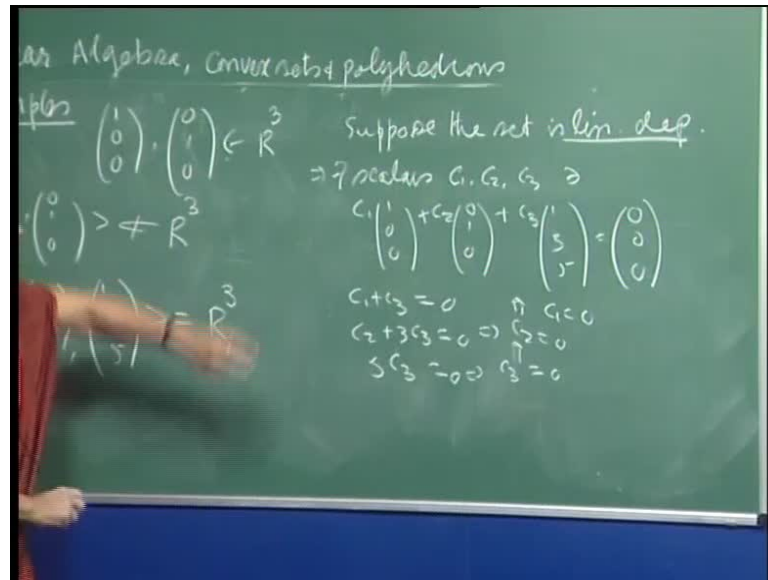 ar Algebra, Convex sets & polyhedrons
mples (1 0 0), (0 1 0) ∈ R^3
(0 1 0) > ≠ R^3
(1 5) > = R^3
Suppose the set is lin. dep.
⇒ ∃ scalars C1, C2, C3 ∋
C1 (1 0 0) + C2 (0 1 0) + C3 (1 3 5) = (0 0 0)
C1 + C3 = 0 ⇑ C1 = 0
C2 + 3C3 = 0 ⇒ C2 = 0
⇑
5C3 = 0 ⇒ C3 = 0